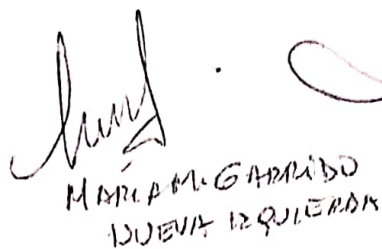 MARÍA M. GARRIDO
NUEVA IZQUIERDA